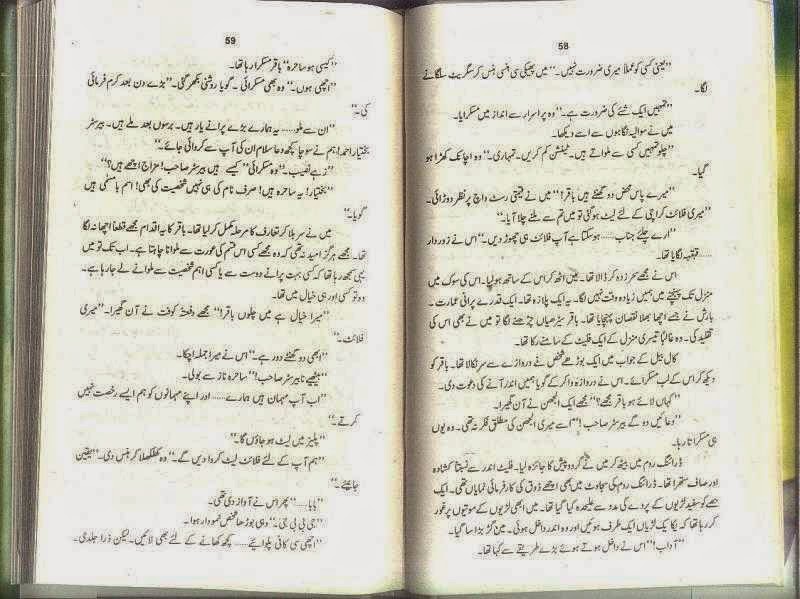 58
”یعنی کسی کو عملاً میری ضرورت نہیں۔“ میں پھیکی سی ہنسی ہنس کر سگریٹ سلگانے
لگا۔
”تمہیں ایک شئے کی ضرورت ہے۔“ وہ پراسرار سے انداز میں مسکرایا۔
میں نے سوالیہ نگاہوں سے اسے دیکھا۔
”چلو تمہیں کسی سے ملواتے ہیں۔ ٹینشن کم کریں۔ تمہاری۔“ وہ اچانک کھڑا ہو
گیا۔
”میرے پاس محض دو گھنٹے ہیں باقر!“ میں نے قیمتی رسٹ واچ پر نظر دوڑائی۔
”میری فلائٹ کراچی کے لئے لیٹ ہو گئی تو میں تم سے ملنے چلا آیا۔“
”ارے چلئے جناب ...... ہو سکتا ہے آپ فلائٹ ہی چھوڑ دیں۔“ اس نے زور دار
...... قہقہہ لگایا تھا۔
اس نے مجھے سحر زدہ کر ڈالا تھا۔ میں اٹھ کر اس کے ساتھ ہو لیا۔ اس کی سوک میں
منزل تک پہنچنے میں ہمیں زیادہ وقت نہیں لگا۔ یہ ایک پلازہ تھا۔ ایک قدرے پرانی عمارت۔
بارش نے جسے اچھا بھلا نقصان پہنچایا تھا۔ باقر سیڑھیاں چڑھنے لگا تو میں نے بھی اس کی
تقلید کی۔ وہ غالباً تیسری منزل کے ایک فلیٹ کے سامنے رکا تھا۔
کال بیل کے جواب میں ایک بوڑھے شخص نے دروازے سے سر نکالا تھا۔ باقر کو
دیکھ کر اس کے لب مسکرائے۔ اس نے دروازہ وا کر کے گویا ہمیں اندر آنے کی دعوت دی۔
”کہاں لائے ہو باقر مجھے؟“ مجھے ایک الجھن نے آن گھیرا۔
”دعائیں دو گے بیرسٹر صاحب!“ اسے میری الجھن کی مطلق فکر نہ تھی۔ وہ یوں
ہی مسکراتا رہا۔
ڈرائنگ روم میں بیٹھ کر میں نے گردوپیش کا جائزہ لیا۔ فلیٹ اندر سے نسبتاً کشادہ
اور صاف ستھرا تھا۔ ڈرائنگ روم کی سجاوٹ میں بھی اچھے ذوق کی کارفرمائی نمایاں تھی۔ ایک
حصے کو سفید لڑیوں کے پردے کی مدد سے علیحدہ کیا گیا تھا۔ میں ابھی لڑیوں کے موتیوں پر غور
کر رہا تھا کہ یکایک لڑیاں ایک طرف ہوئیں اور وہ اندر داخل ہوئی۔ میں گڑبڑا سا گیا۔
”آداب!“ اس نے داخل ہوتے ہوئے بڑے طریقے سے کہا تھا۔
59
”کیسی ہو ساحرہ“ باقر مسکرا رہا تھا۔
”اچھی ہوں۔“ وہ بھی مسکرائی۔ گویا روشنی بکھر گئی۔ ”بڑے دن بعد کرم فرمائی
کی۔“
”ان سے ملو ...... یہ ہمارے بڑے پرانے یار ہیں۔ برسوں بعد ملے ہیں۔ بیرسٹر
بختیار احمد! ہم نے سوچا کچھ دعا سلام ان کی آپ سے کروائی جائے۔“
”زہے نصیب۔“ وہ مسکرائی ”کیسے ہیں بیرسٹر صاحب! مزاج اچھے ہیں؟“
”بختیار! یہ ساحرہ ہیں! صرف نام کی ہی نہیں شخصیت کی بھی! اسم بامسمٰی ہیں
گویا۔“
میں نے سر ہلا کر تعارف کا مرحلہ مکمل کر لیا تھا۔ باقر کا یہ اقدام مجھے قطعاً اچھا نہ لگا
تھا۔ مجھے ہرگز امید نہ تھی کہ وہ مجھے کسی اس قسم کی عورت سے ملوانا چاہتا ہے۔ اب تک تو میں
یہی سمجھ رہا تھا کہ کسی بہت پرانے دوست سے یا کسی اہم شخصیت سے ملوانے لے جا رہا ہے۔
وہ تو کسی اور ہی خیال میں تھا۔
”میرا خیال ہے میں چلوں باقر!“ مجھے دفعتاً کوفت نے آن گھیرا۔ ”میری
فلائٹ۔“
”ابھی دو گھنٹے دور ہے۔“ اس نے میرا جملہ اچکا۔
”بیٹھیے نا بیرسٹر صاحب!“ ساحرہ ناز سے بولی۔
”اب آپ مہمان ہیں ہمارے ...... اور اپنے مہمانوں کو ہم ایسے رخصت نہیں
کرتے۔“
”پلیز میں لیٹ ہو جاؤں گا۔“
”ہم آپ کے لئے فلائٹ لیٹ کروا دیں گے۔“ وہ کھلکھلا کر ہنس دی۔ ”یقین
جانیئے۔“
”بابا ......“ پھر اس نے آواز دی تھی۔
”جی بی بی جی۔“ وہی بوڑھا شخص نمودار ہوا۔
”اچھی سی کافی پلوائیے ...... کچھ کھانے کے لئے بھی لائیں۔ لیکن ذرا جلدی۔